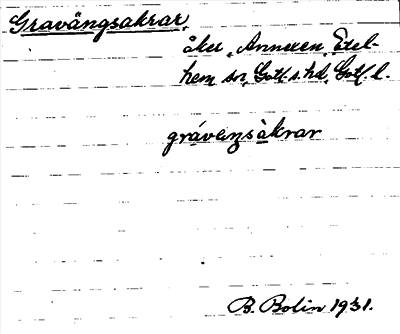 Gravängsakrar,
åker, Annexen, Etel-
hem sn, Gotl. s. hd, Gotl. l.
grávæŋsàkrar
B. Bolin 1931.